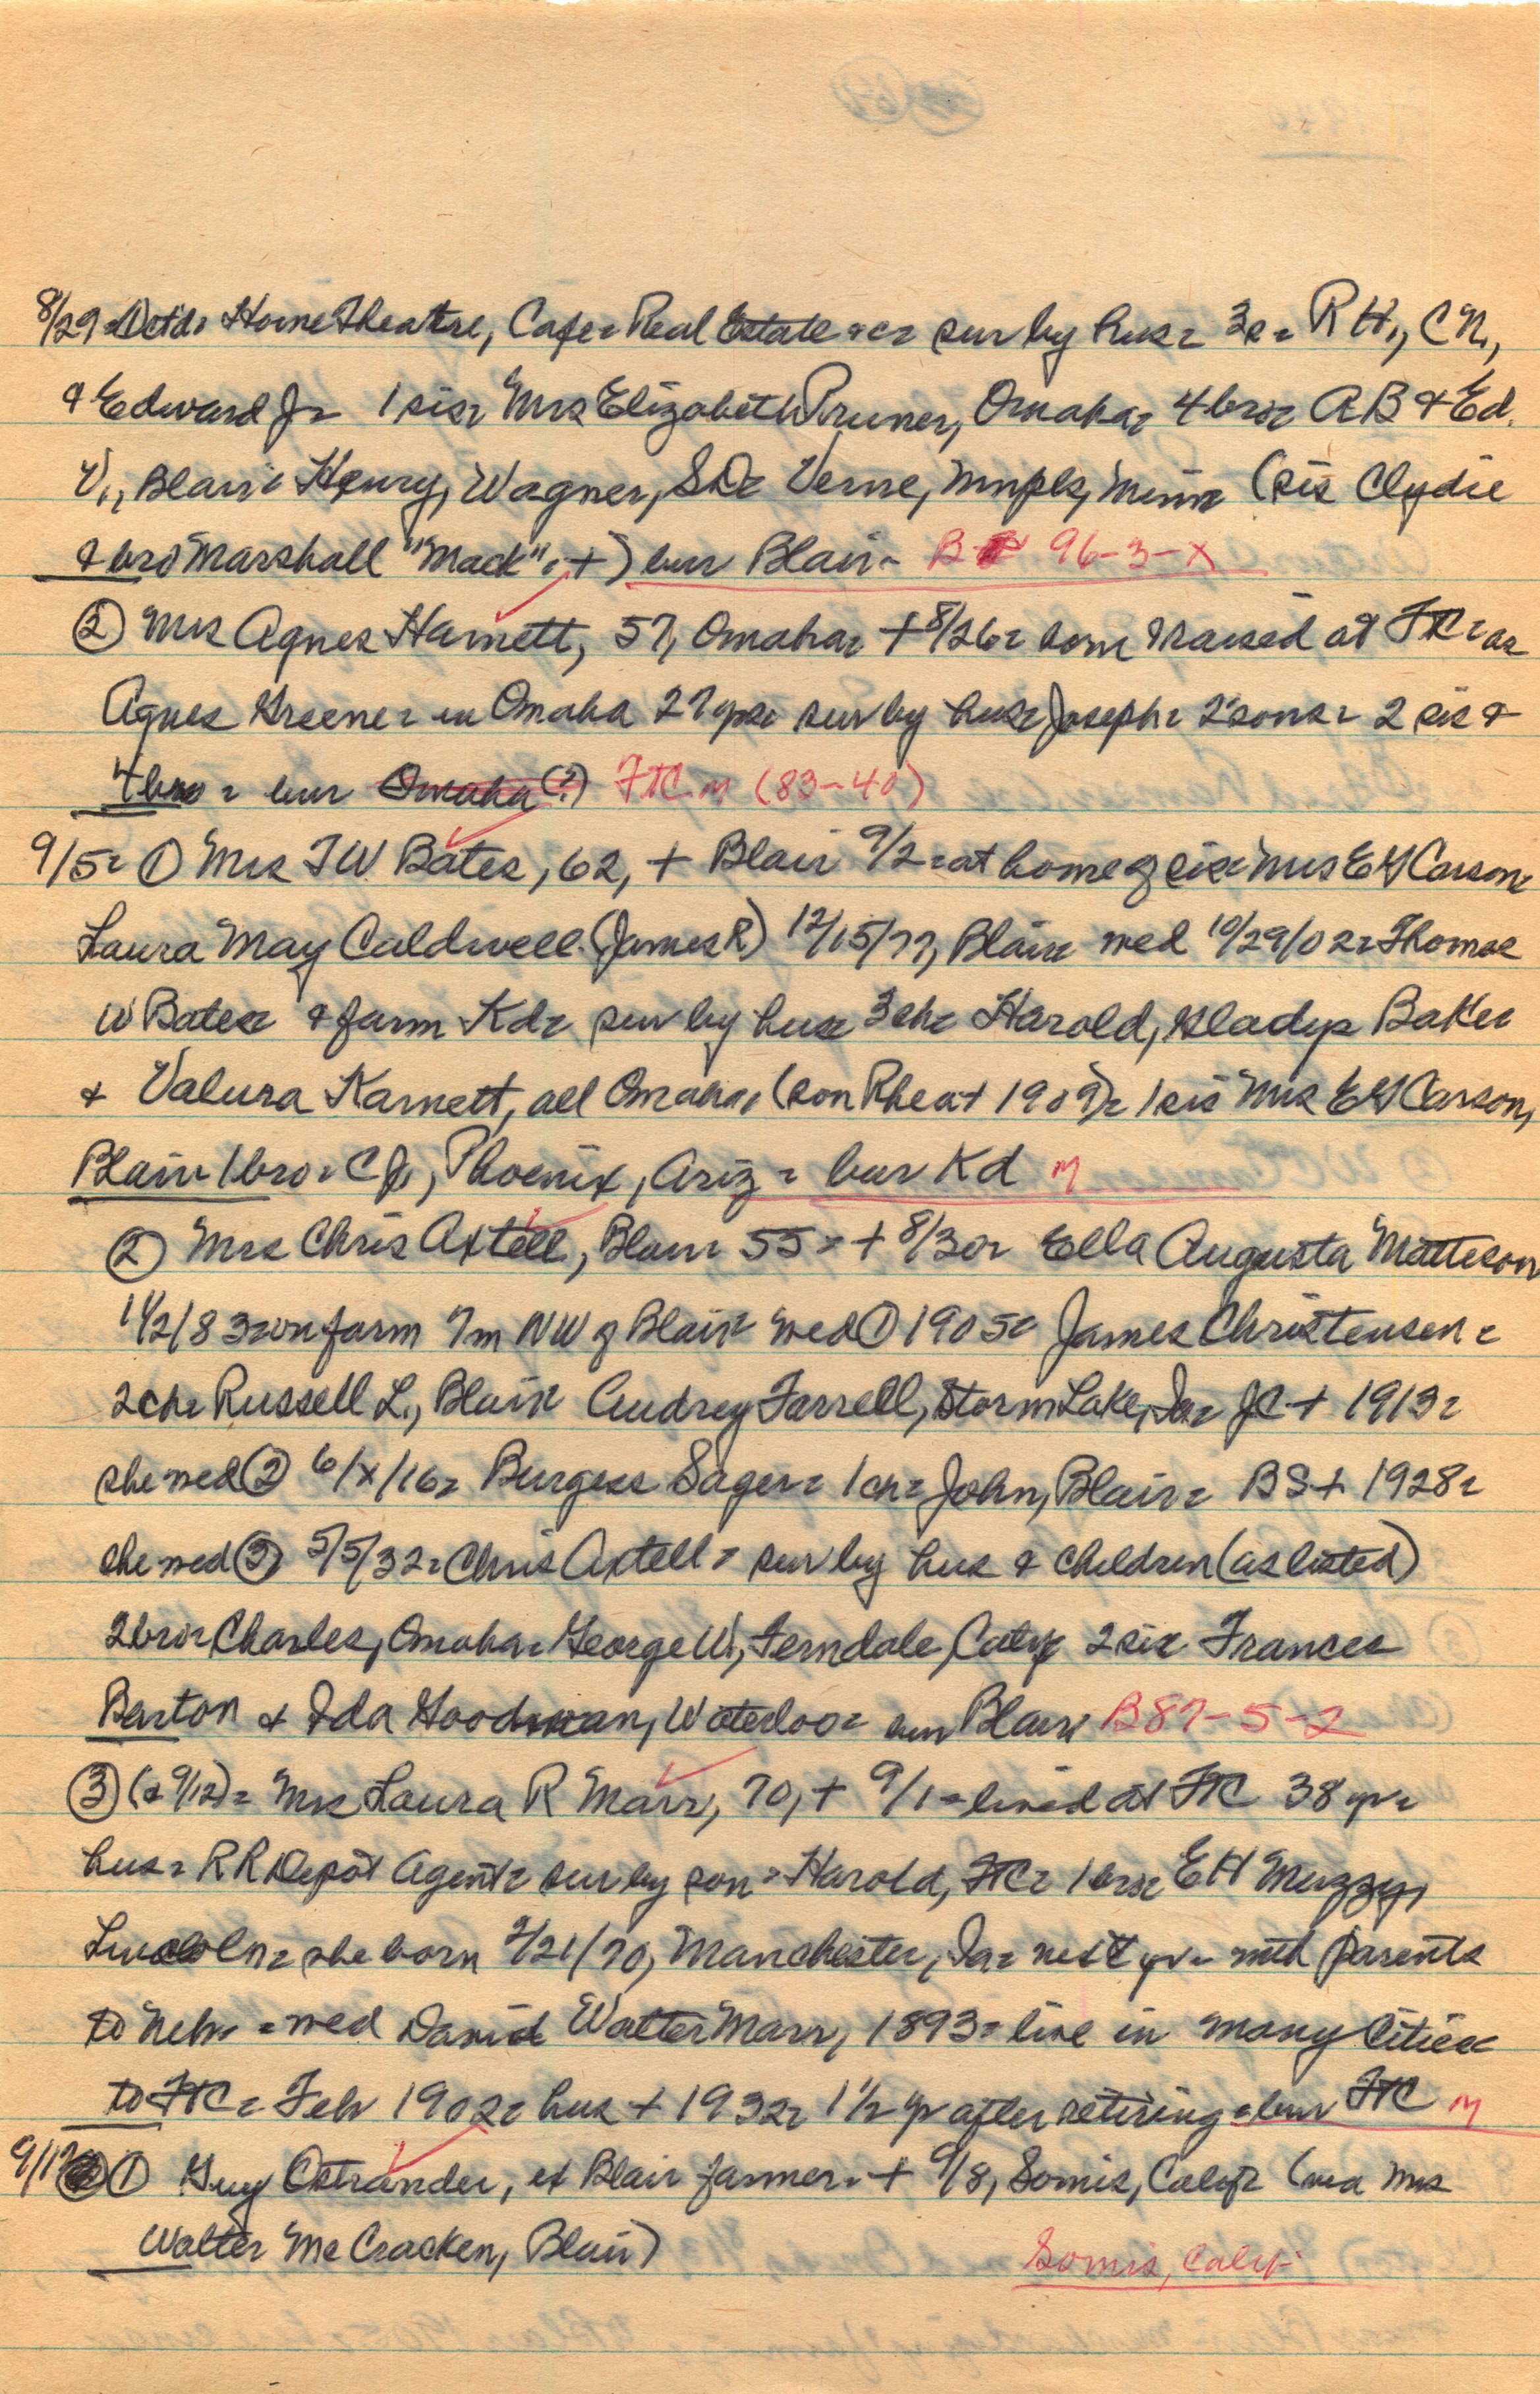 8/29 = ① ctd. Home Theatre, Cafe = Real Estate &c = sur by hus = 3s = R H., C N.,
& Edward Jr = 1 sis = Mrs Elizabeth Pruner, Omaha = 4 bro = A B & Ed.
V., Blair = Henry, Wagner, SD = Verne, Mnpls, Minn = (sis Clydie
& bro Marshall "Mack", +) bur Blair = B 96-3-X
② Mrs Agnes Harnett, 57, Omaha = + 8/26 = born & raised at FtC = as
Agnes Greene = in Omaha 27 yrs = sur by hus = Joseph = 2 sons = 2 sis &
4 bro = bur Omaha (?) FtC M (83-40)
9/5 = ① Mrs T W Bates, 62, + Blair 9/2 = at home of sis = Mrs E G Carson =
Laura May Caldwell (James R) 12/15/77, Blair = wed 10/29/02 = Thomas
W Bates = & farm Kd = sur by hus = 3 ch = Harold, Gladys Baker
& Valura Karnett, all Omaha, (son Rhea + 1909) = 1 sis Mrs E G Carson,
Blair = 1 bro = C J., Phoenix, Ariz = bur Kd M
② Mrs Chris Axtell, Blair = 55 = + 8/30 = Ella Augusta Matteson
11/2/83 = on farm 7m NW of Blair = wed ① 1905 = James Christensen =
2 ch = Russell L., Blair = Audrey Farrell, Storm Lake, Ia = JC + 1913 =
she wed ② 6/x/16 = Burgess Sager = 1 ch = John, Blair = BS + 1928 =
she wed ③ 5/5/32 = Chris Axtell = sur by hus & children (as listed)
2 bro = Charles, Omaha = George W., Ferndale, Calif = 2 sis = Frances
Barton & Ida Goodman, Waterloo = bur Blair B 87-5-2
③ (& 9/12) = Mrs Laura R Marr, 70, + 9/1 = lived at FtC 38 yr =
hus = RR Depot Agent = sur by son = Harold, FtC = 1 bro = E H Muzzy,
Lincoln = she born 2/21/70, Manchester, Ia = next yr = with parents
to Neb. = wed David Walter Marr, 1893 = live in many cities
to FtC = Feb 1902 = hus + 1932 = 1½ yr after retiring = bur FtC M
9/12 ① Guy Ostrander, ex Blair farmer = + 9/8, Somis, Calif = (via Mrs
Walter McCracken, Blair) Somis, Calif.